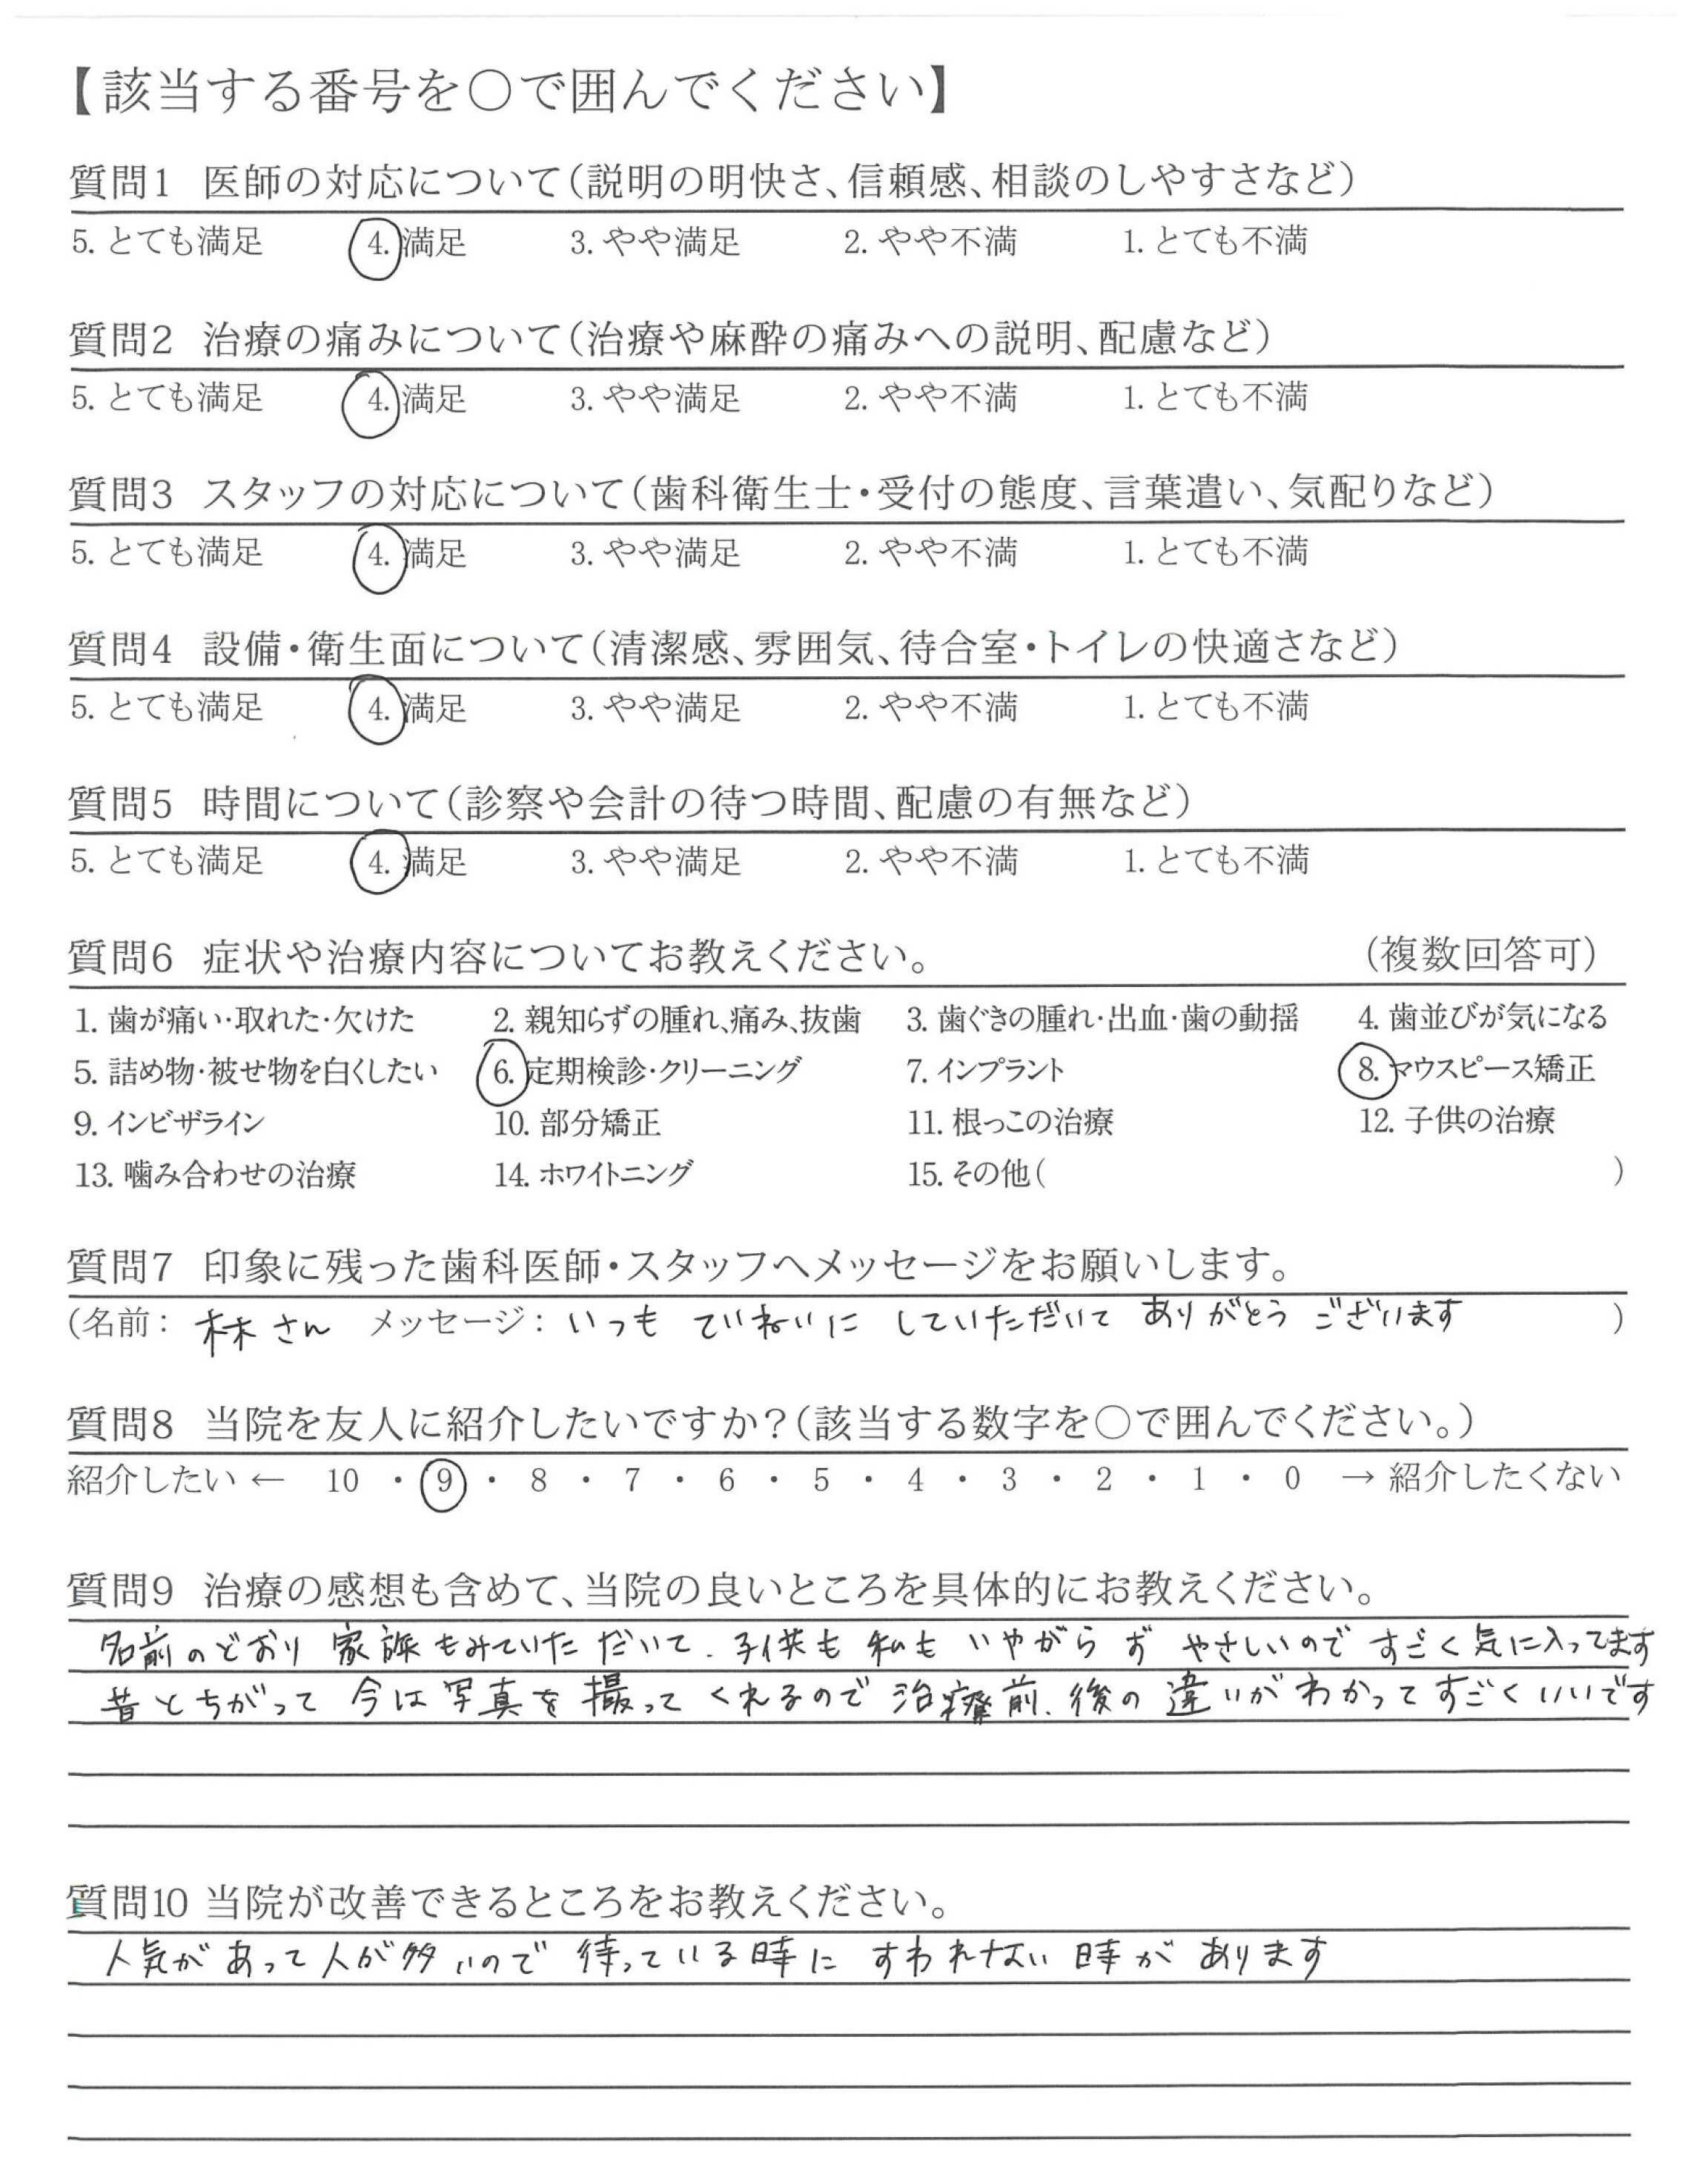 【該当する番号を○で囲んでください】
質問1 医師の対応について(説明の明快さ、信頼感、相談のしやすさなど)
5. とても満足 4. 満足 3. やや満足 2. やや不満 1. とても不満
質問2 治療の痛みについて(治療や麻酔の痛みへの説明、配慮など)
5. とても満足 4. 満足 3. やや満足 2. やや不満 1. とても不満
質問3 スタッフの対応について(歯科衛生士・受付の態度、言葉遣い、気配りなど)
5. とても満足 4. 満足 3. やや満足 2. やや不満 1. とても不満
質問4 設備・衛生面について(清潔感、雰囲気、待合室・トイレの快適さなど)
5. とても満足 4. 満足 3. やや満足 2. やや不満 1. とても不満
質問5 時間について(診察や会計の待つ時間、配慮の有無など)
5. とても満足 4. 満足 3. やや満足 2. やや不満 1. とても不満
質問6 症状や治療内容についてお教えください。 (複数回答可)
1. 歯が痛い・取れた・欠けた 2. 親知らずの腫れ、痛み、抜歯 3. 歯ぐきの腫れ・出血・歯の動揺 4. 歯並びが気になる
5. 詰め物・被せ物を白くしたい 6. 定期検診・クリーニング 7. インプラント 8. マウスピース矯正
9. インビザライン 10. 部分矯正 11. 根っこの治療 12. 子供の治療
13. 噛み合わせの治療 14. ホワイトニング 15. その他( )
質問7 印象に残った歯科医師・スタッフへメッセージをお願いします。
(名前: 林さん メッセージ: いつも ていねいに していただいて ありがとう ございます )
質問8 当院を友人に紹介したいですか?(該当する数字を○で囲んでください。)
紹介したい ← 10 ・ 9 ・ 8 ・ 7 ・ 6 ・ 5 ・ 4 ・ 3 ・ 2 ・ 1 ・ 0 → 紹介したくない
質問9 治療の感想も含めて、当院の良いところを具体的にお教えください。
名前のどおり 家族もみていただいて、子供も 私も いやがらず やさしいので すごく気に入ってます
昔とちがって 今は写真を撮ってくれるので 治療前、後の違いがわかってすごくいいです
質問10 当院が改善できるところをお教えください。
人気があって人が多いので 待っている時に すわれない 時が あります